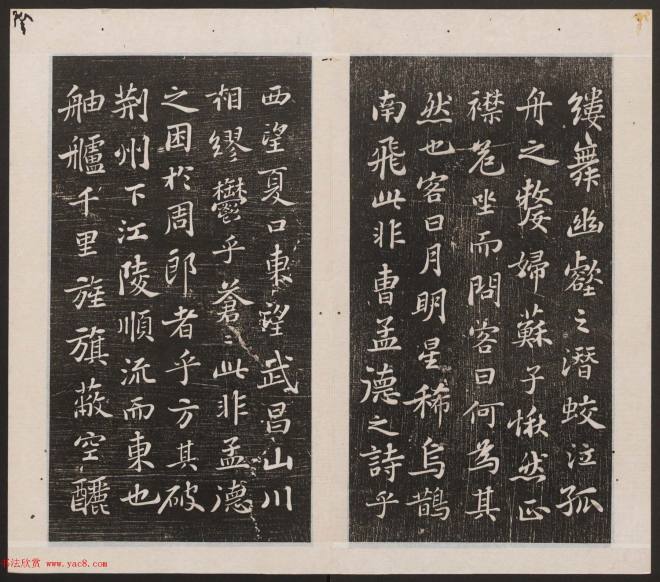 縷舞幽壑之潛蛟泣孤
舟之嫠婦蘇子愀然正
襟危坐而問客曰何為其
然也客曰月明星稀烏鵲
南飛此非曹孟德之詩乎
西望夏口東望武昌山川
相繆鬱乎蒼〻此非孟德
之困於周郎者乎方其破
荊州下江陵順流而東也
舳艫千里旌旗蔽空釃
书法欣赏 www.yac8.com